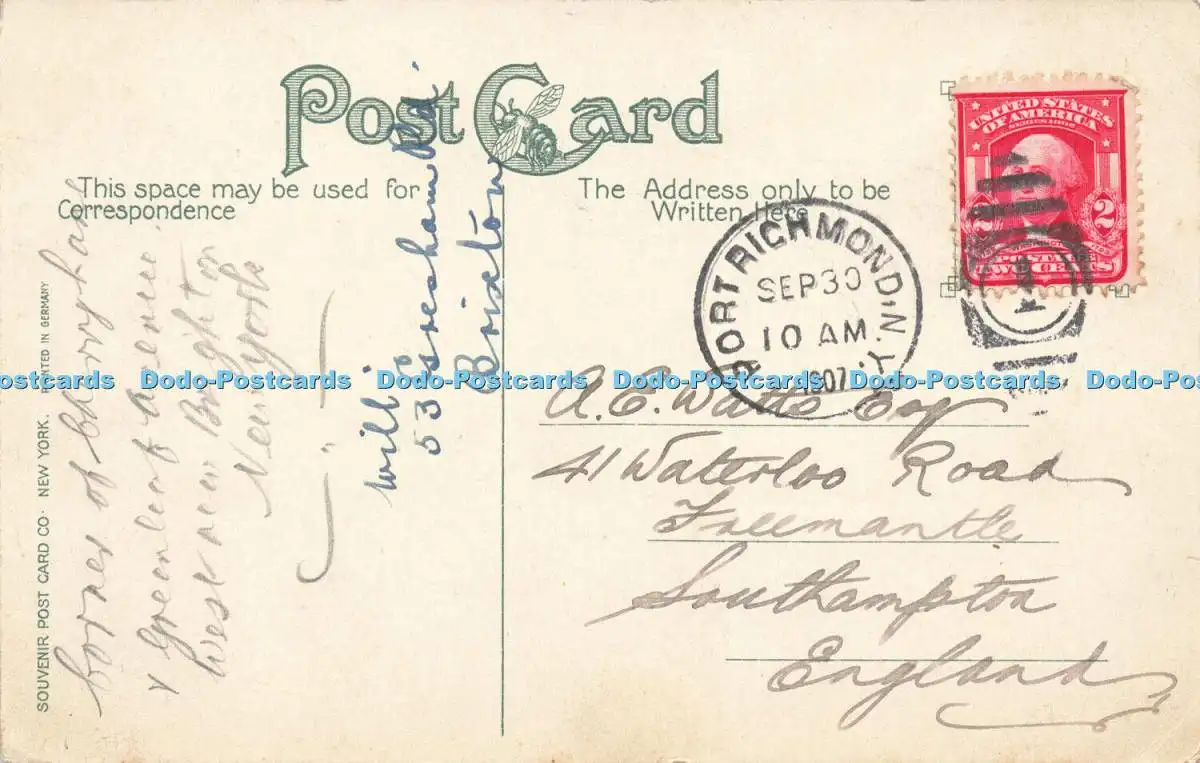 Post Card
This space may be used for
Correspondence
The Address only to be
Written Here
UNITED STATES
OF AMERICA
SERIES 1902
2 2
POSTAGE
TWO CENTS
PORT RICHMOND, N.Y.
SEP 30
10 AM
1907
1
SOUVENIR POST CARD CO. NEW YORK. PRINTED IN GERMANY
of
& Greenleaf
West new Brighton
New York
Will
53 Gresham Rd
Brixton
A. E. Watts Esq
41 Waterloo Road
Freemantle
Southampton
England
Dodo-Postcards Dodo-Postcards Dodo-Postcards Dodo-Postcards Dodo-Postcards Dodo-Postcards